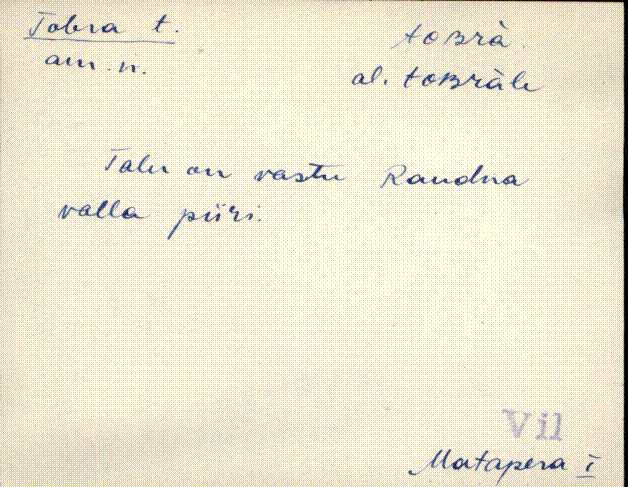 Tobra t.
am. n.
toʙrà.
al. toʙràle
Talu on vastu Raudna
valla piiri.
Vil
Matapera I